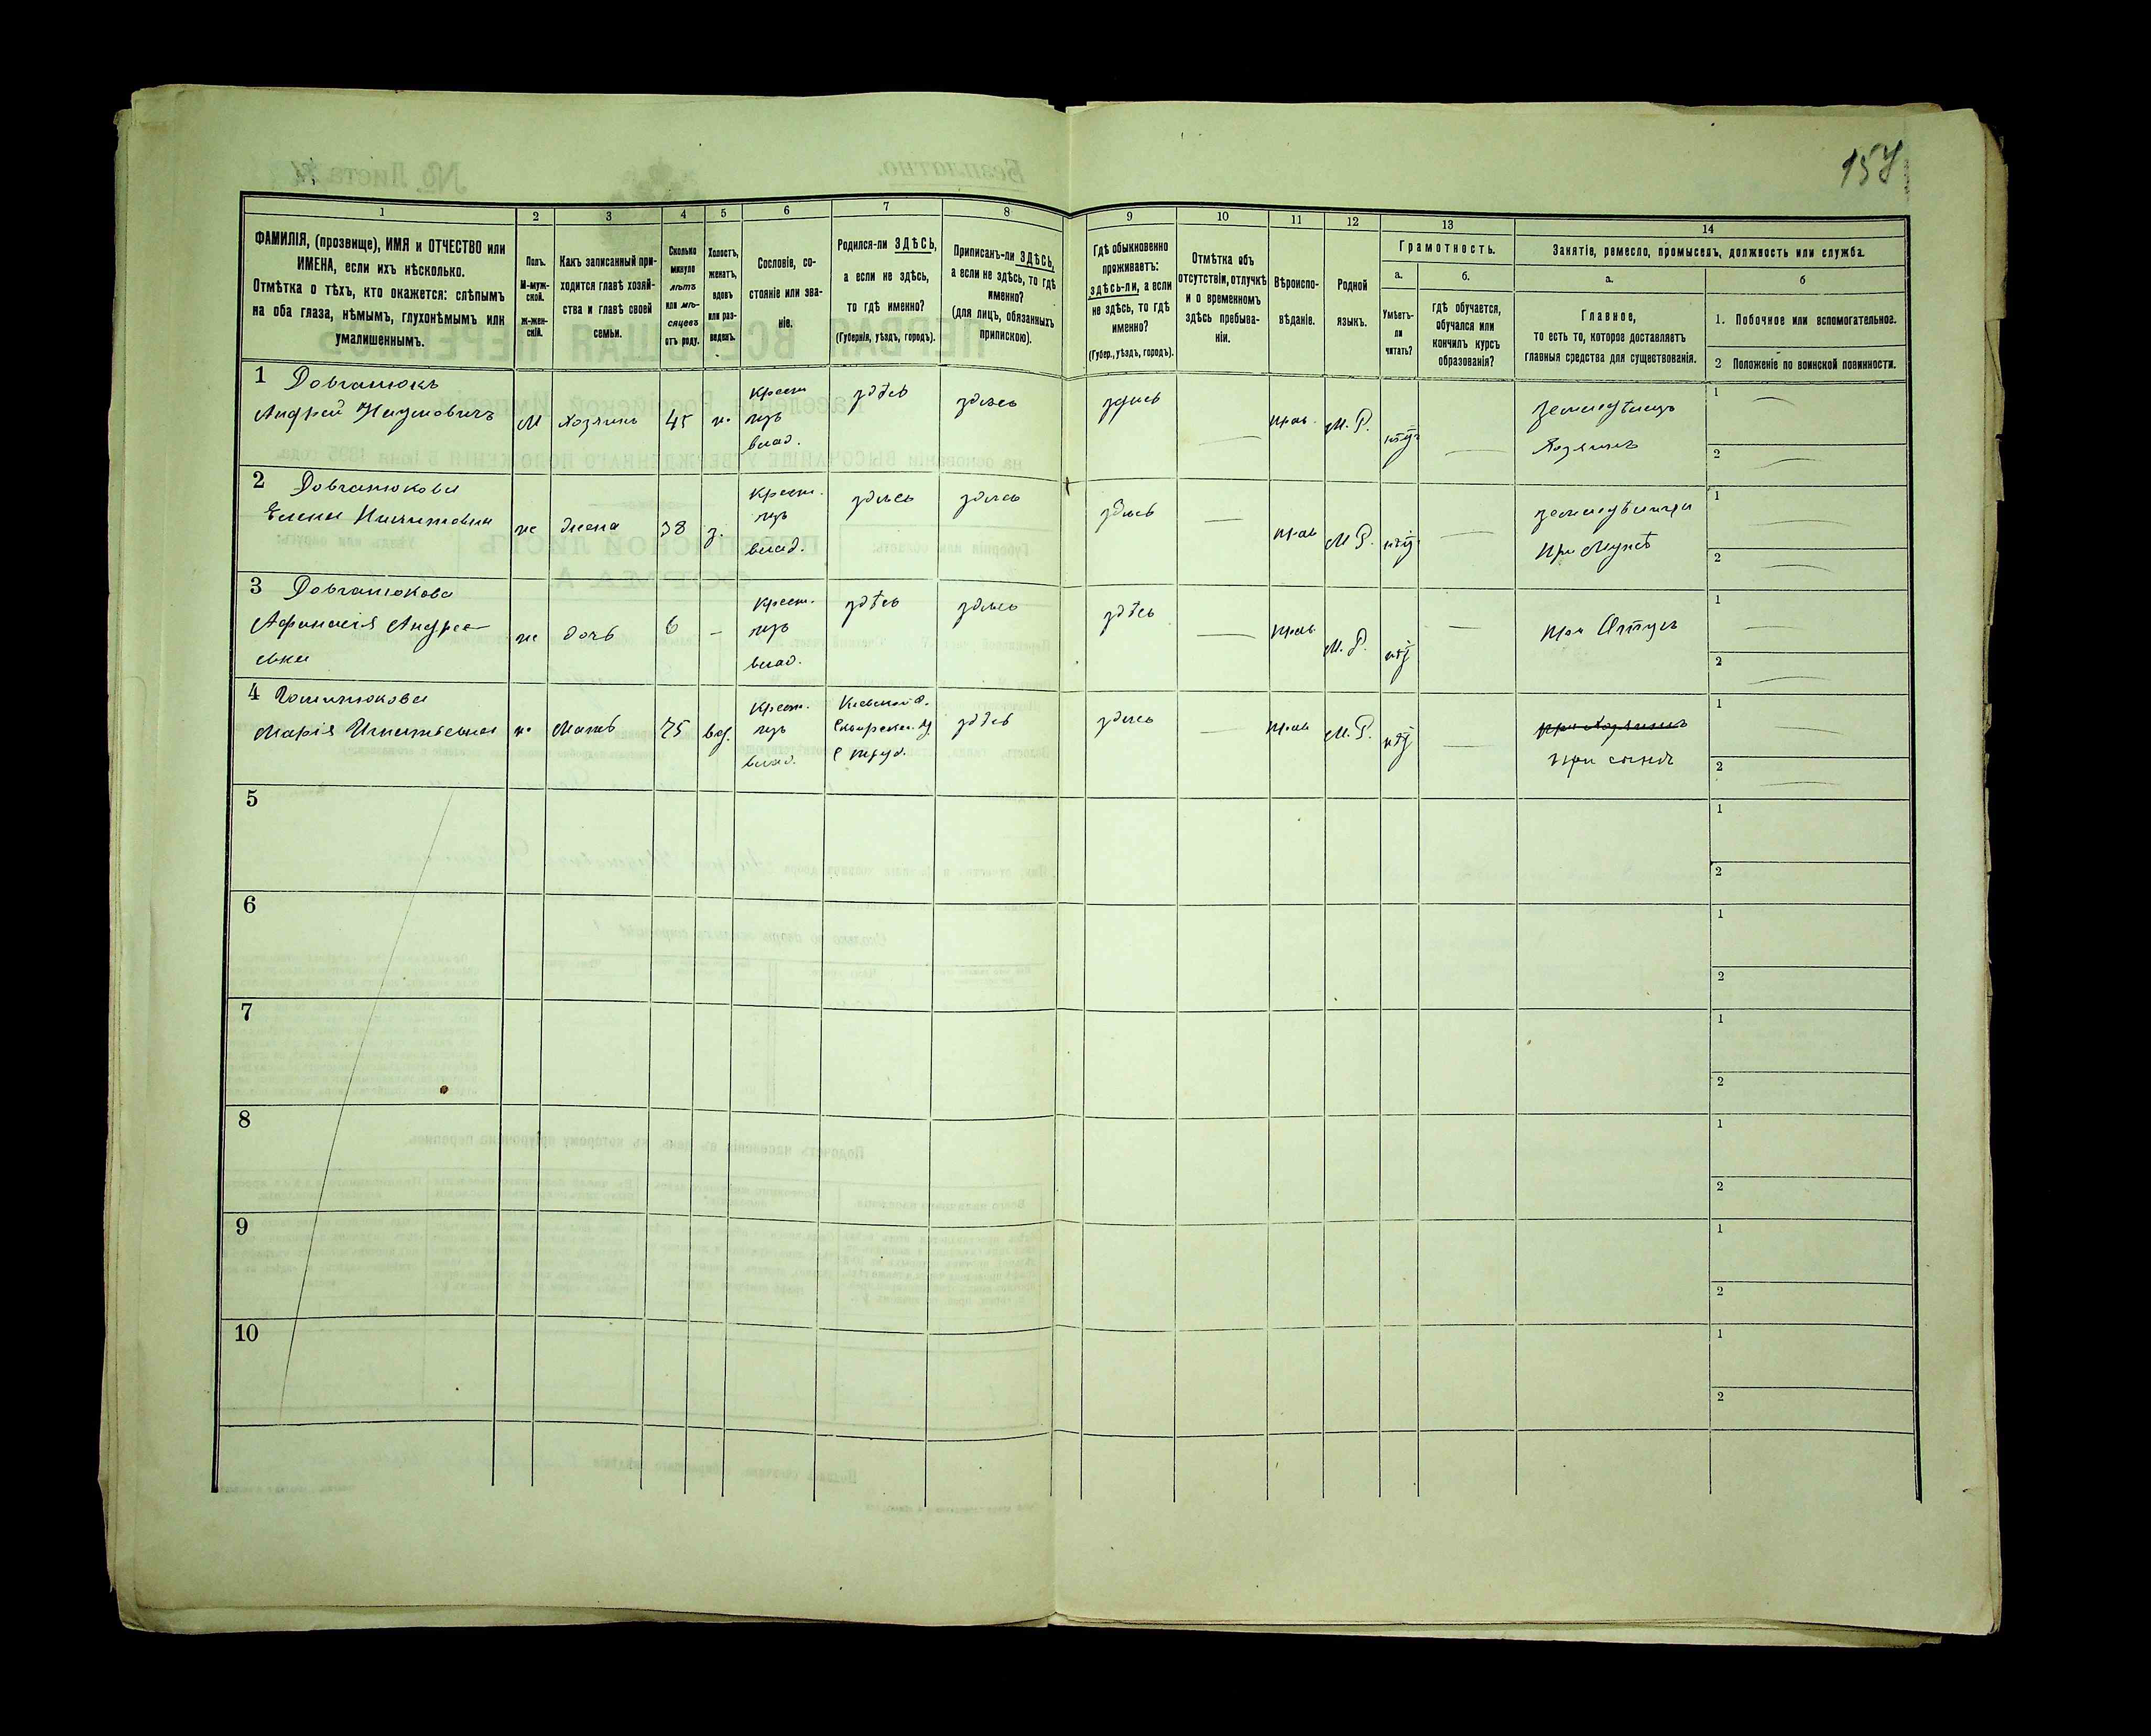 158
1
2
3
4
5
6
7
8
9
10
11
12
13
14
ФАМИЛІЯ, (прозвище), ИМЯ и ОТЧЕСТВО или
ИМЕНА, если ихъ нѣсколько.
Отмѣтка о тѣхъ, кто окажется: слѣпымъ
на оба глаза, нѣмымъ, глухонѣмымъ или
умалишеннымъ.
Полъ.
М-муж-
ской.
ж-жен-
скій.
Какъ записанный при-
ходится главѣ хозяй-
ства и главѣ своей
семьи.
Сколько
минуло
лѣтъ
или мѣ-
сяцевъ
отъ роду.
Холостъ,
женатъ,
вдовъ
или раз-
веденъ.
Сословіе, со-
стояніе или зва-
ніе.
Родился-ли ЗДѢСЬ,
а если не здѣсь,
то гдѣ именно?
(Губернія, уѣздъ, городъ).
Приписанъ-ли ЗДѢСЬ,
а если не здѣсь, то гдѣ
именно?
(для лицъ, обязанныхъ
припискою).
Гдѣ обыкновенно
проживаетъ:
здѣсь-ли, а если
не здѣсь, то гдѣ
именно?
(Губер., уѣздъ, городъ).
Отмѣтка объ
отсутствіи, отлучкѣ
и о временномъ
здѣсь пребыва-
ніи.
Вѣроиспо-
вѣданіе.
Родной
языкъ.
Грамотность.
а.
Умѣетъ-
ли
читать?
б.
гдѣ обучается,
обучался или
кончилъ курсъ
образованія?
Занятіе, ремесло, промыселъ, должность или служба.
а.
Главное,
то есть то, которое доставляетъ
главныя средства для существованія.
б
1. Побочное или вспомогательное.
2 Положеніе по воинской повинности.
1 Довганюкъ
Андрей Наумовичъ
М
Хозяинъ
45
ж.
крест
изъ
влад.
здѣсь
здѣсь
здѣсь
прав.
М. Р.
нѣтъ
земледѣлецъ
Хозяинъ
1
2
2 Довганюкова
Елена Никитовна
ж
жена
38
з.
крест.
изъ
влад.
здѣсь
здѣсь
здѣсь
прав
М. Р.
нѣтъ
при Мужѣ
1
2
3 Довганюкова
Афанасія Андрее-
вна
ж
дочь
6
крест.
изъ
влад.
здѣсь
здѣсь
здѣсь
прав.
М. Р.
нѣтъ
при Отцѣ
1
2
4
Марія Игнатьевна
ж
Мать
75
вд.
крест.
изъ
влад.
Кіевской г.
Сквирск. у.
здѣсь
здѣсь
прав
М. Р.
нѣтъ
при Хозяинѣ
при сынѣ
1
2
5
1
2
6
1
2
7
1
2
8
1
2
9
1
2
10
1
2